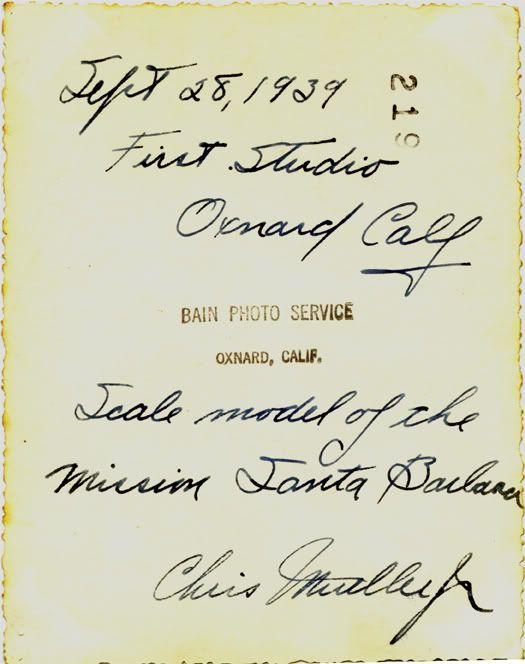 Sept 28, 1939
219
First Studio
Oxnard Calf
BAIN PHOTO SERVICE
OXNARD, CALIF.
Scale model of the
Mission Santa Barbara
Chris Mueller Jr